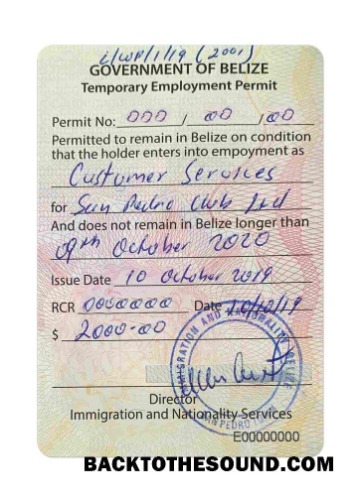 L/WP/1/19 (2001)
GOVERNMENT OF BELIZE
Temporary Employment Permit
Permit No: 000 / 00 / 00
Permitted to remain in Belize on condition
that the holder enters into empoyment as
Customer Services
for San Pedro Club Ltd
And does not remain in Belize longer than
09th October 2020
Issue Date 10 October 2019
RCR 0000000 Date 10/10/19
$ 2000-00
IMMIGRATION AND NATIONALITY BELIZE
SAN PEDRO
Director
Immigration and Nationality Services
E00000000
BACKTOTHESOUND.COM